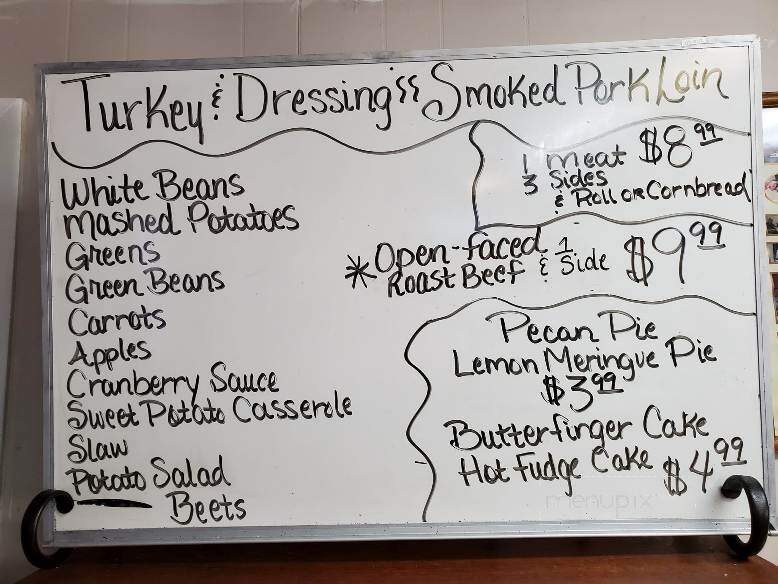 Turkey & Dressing "Smoked Pork Loin
1 meat $8.99
3 Sides
& Roll or Cornbread
White Beans
Mashed Potatoes
Greens
Green Beans
Carrots
Apples
Cranberry Sauce
Sweet Potato Casserole
Slaw
Potato Salad
Beets
* Open-faced
Roast Beef & 1 Side $9.99
Pecan Pie
Lemon Meringue Pie
$3.99
Butterfinger Cake
Hot Fudge Cake $4.99
menupix